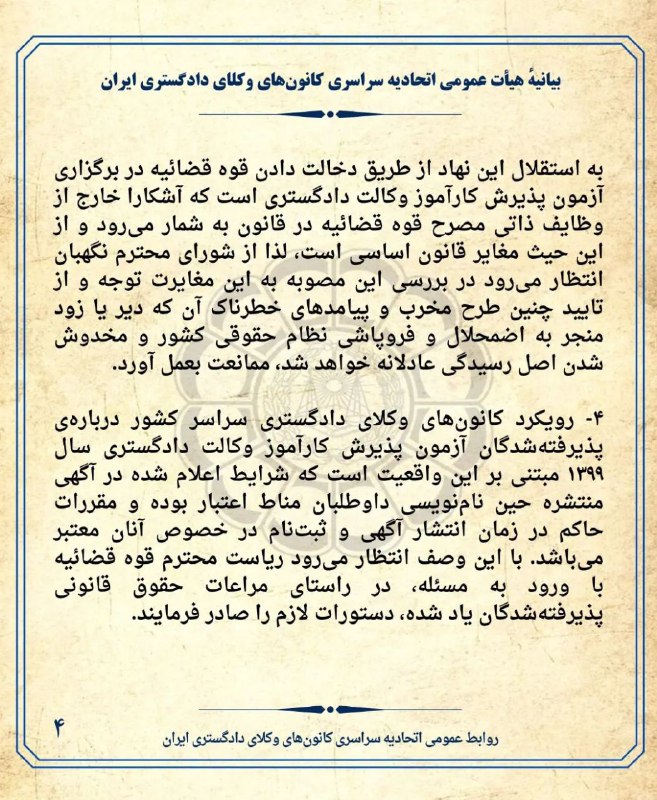 بیانیهٔ هیأت عمومی اتحادیه سراسری کانون‌های وکلای دادگستری ایران
به استقلال این نهاد از طریق دخالت دادن قوه قضائیه در برگزاری
آزمون پذیرش کارآموز وکالت دادگستری است که آشکارا خارج از
وظایف ذاتی مصرح قوه قضائیه در قانون به شمار می‌رود و از
این حیث مغایر قانون اساسی است، لذا از شورای محترم نگهبان
انتظار می‌رود در بررسی این مصوبه به این مغایرت توجه و از
تایید چنین طرح مخرب و پیامدهای خطرناک آن که دیر یا زود
منجر به اضمحلال و فروپاشی نظام حقوقی کشور و مخدوش
شدن اصل رسیدگی عادلانه خواهد شد، ممانعت بعمل آورد.
۴- رویکرد کانون‌های وکلای دادگستری سراسر کشور درباره‌ی
پذیرفته‌شدگان آزمون پذیرش کارآموز وکالت دادگستری سال
۱۳۹۹ مبتنی بر این واقعیت است که شرایط اعلام شده در آگهی
منتشره حین نام‌نویسی داوطلبان مناط اعتبار بوده و مقررات
حاکم در زمان انتشار آگهی و ثبت‌نام در خصوص آنان معتبر
می‌باشد. با این وصف انتظار می‌رود ریاست محترم قوه قضائیه
با ورود به مسئله، در راستای مراعات حقوق قانونی
پذیرفته‌شدگان یاد شده، دستورات لازم را صادر فرمایند.
۴
روابط عمومی اتحادیه سراسری کانون‌های وکلای دادگستری ایران